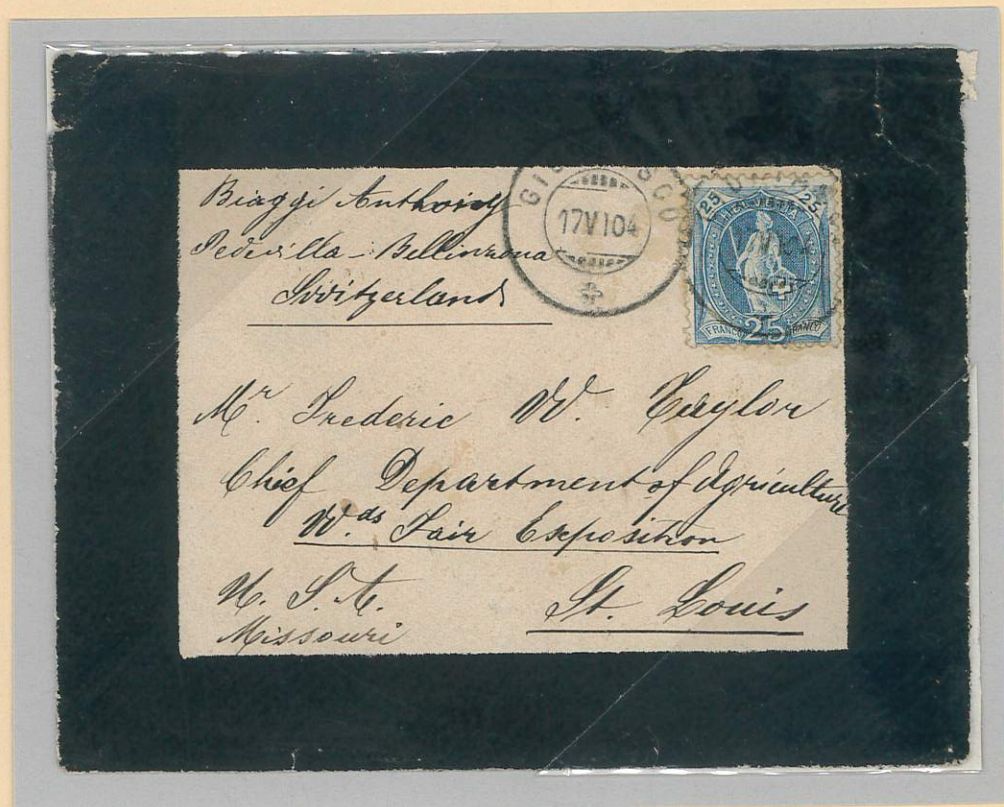 Biaggi Anthony
Pedevilla - Bellinzona
Switzerland
17 VI 04
25 HELVETIA 25
FRANCO 25 FRANCO
Mr. Frederic W. Taylor
Chief Department of Agriculture
W.ds Fair Exposition
U. S. A. St. Louis
Missouri